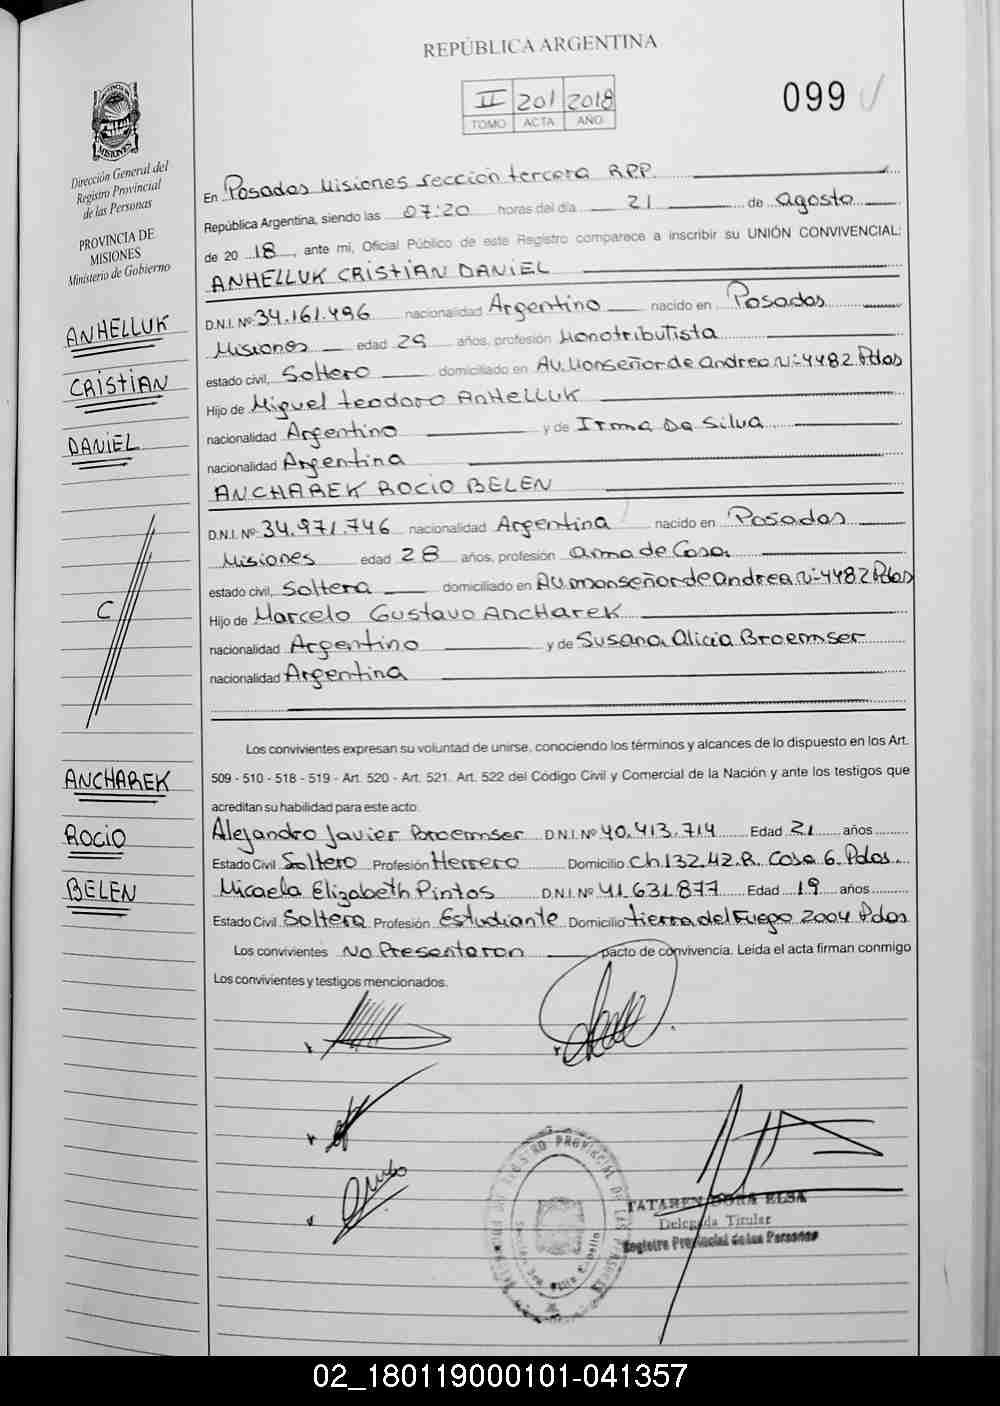 REPÚBLICA ARGENTINA
II 201 2018
TOMO ACTA AÑO
099
MISIONES
Dirección General del
Registro Provincial
de las Personas
PROVINCIA DE
MISIONES
Ministerio de Gobierno
ANHELLUK
CRISTIAN
DANIEL
C
ANCHAREK
ROCIO
BELEN
En Posadas Misiones sección tercera RPP.
República Argentina, siendo las 07:20 horas del día 21 de agosto
de 20 18, ante mi, Oficial Público de este Registro comparece a inscribir su UNIÓN CONVIVENCIAL:
ANHELLUK CRISTIAN DANIEL
D.N.I. Nº 34.161.496 nacionalidad Argentino nacido en Posadas
Misiones edad 29 años, profesión Monotributista
estado civil, Soltero domiciliado en Av. Monseñor de andrea N:4482 Pdas
Hijo de Miguel teodoro ANHELLUK
nacionalidad Argentino y de Irma Da Silva
nacionalidad Argentina
ANCHAREK ROCIO BELEN
D.N.I. Nº 34.971.746 nacionalidad Argentina nacido en Posadas
Misiones edad 28 años, profesión ama de Casa
estado civil, Soltera domiciliado en Av. monseñor de andrea N:4482 Pdas
Hijo de Marcelo Gustavo ANCHAREK
nacionalidad Argentino y de Susana Alicia Broemser
nacionalidad Argentina
Los convivientes expresan su voluntad de unirse, conociendo los términos y alcances de lo dispuesto en los Art.
509 - 510 - 518 - 519 - Art. 520 - Art. 521. Art. 522 del Código Civil y Comercial de la Nación y ante los testigos que
acreditan su habilidad para este acto:
Alejandro Javier Broemser D.N.I. Nº 40.413.714 Edad 21 años
Estado Civil Soltero Profesión Herrero Domicilio Ch.132.42.R. Casa 6. Pdas.
Micaela Elizabeth Pintos D.N.I. Nº 41.631.877 Edad 19 años
Estado Civil Soltera Profesión Estudiante Domicilio tierra del Fuego 2004 Pdas
Los convivientes No Presentaron pacto de convivencia. Leída el acta firman conmigo
Los convivientes y testigos mencionados.
TATAREN DORA ELSA
Delegada Titular
Registro Provincial de las Personas
02_180119000101-041357